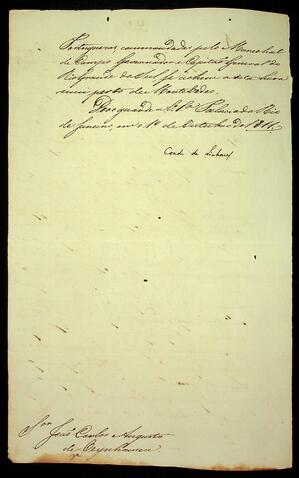 Portuguezas, commandadas pelo Marechal
de Campo Governador e Capitão General do
Rio grande do Sul se achem a esta hora
mui perto de Monte Video.
Deos guarde a V. S.ª Palacio do Rio
de Janeiro, em o 1º de Outubro de 1811.
Conde de Linhares
S.or João Carlos Augusto
de Oeynhausen